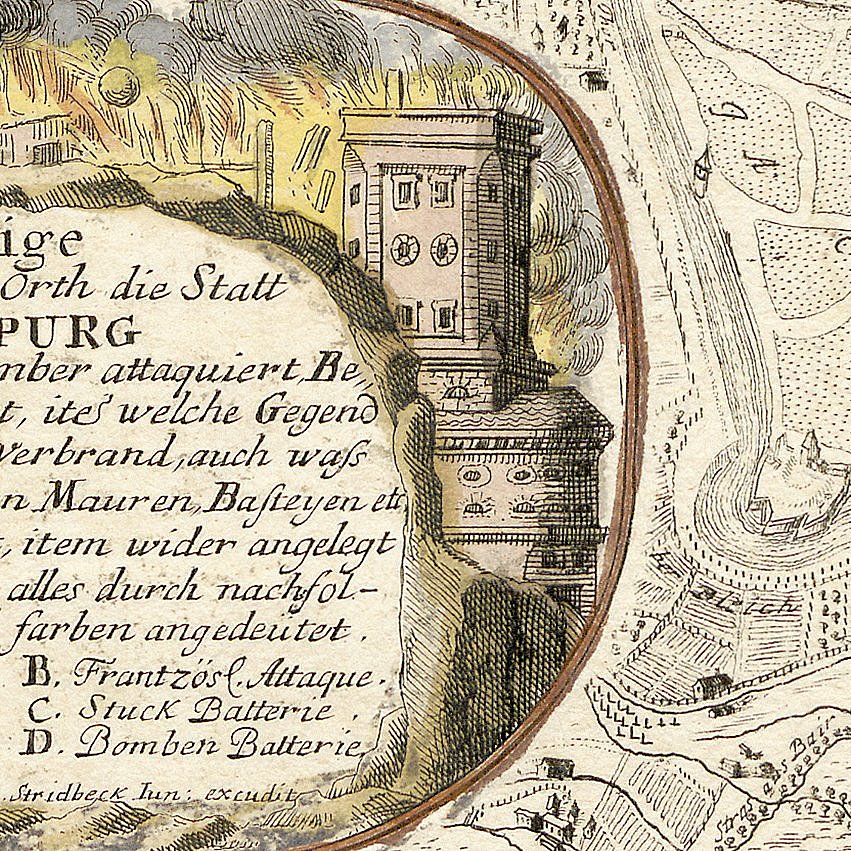 ige
Orth die Statt
PURG
mber attaquiert, Be,,
t, ites welche Gegend
Verbrand, auch waſs
n Mauren, Baſteyen etc
, item wider angelegt
alles durch nachfol-
farben angedeütet.
B. Frantzöſ. Attaque.
C. Stuck Batterie.
D. Bomben Batterie
Stridbeck Iun: excudit
Bleich
Stras aus Bair